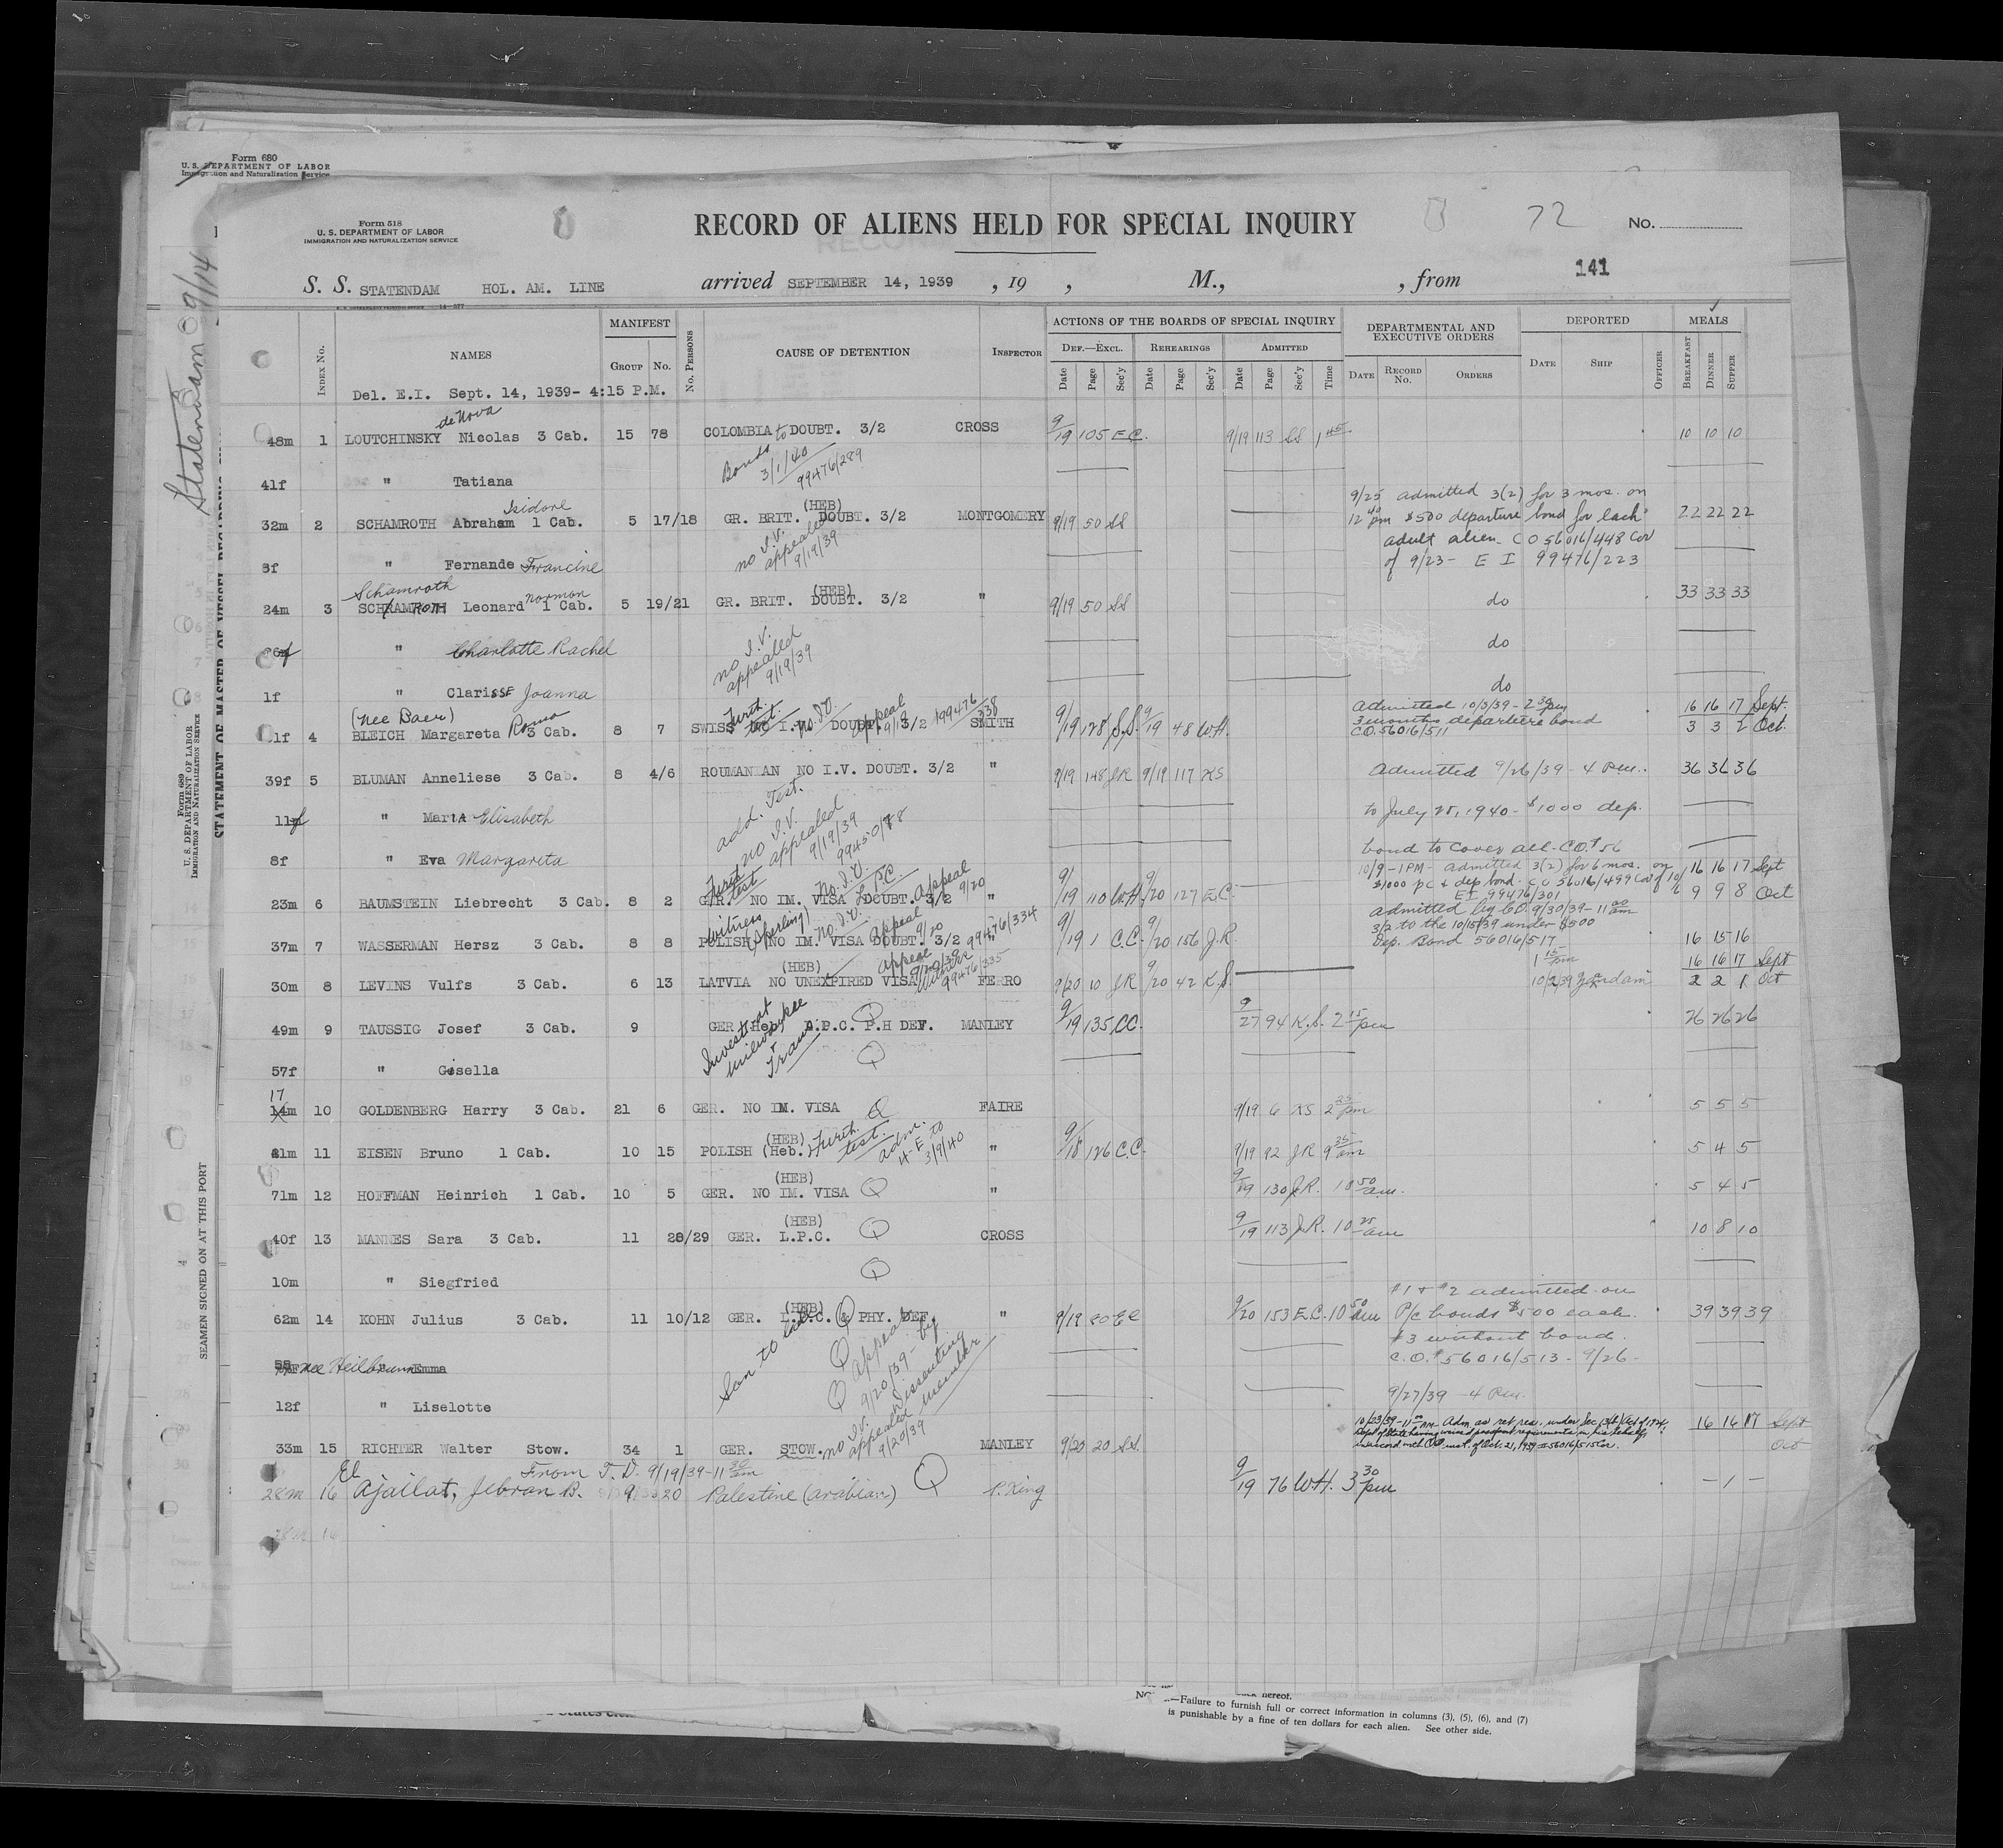 Form 680
U. S. DEPARTMENT OF LABOR
Immigration and Naturalization Service
Form 518
U. S. DEPARTMENT OF LABOR
IMMIGRATION AND NATURALIZATION SERVICE
RECORD OF ALIENS HELD FOR SPECIAL INQUIRY
72
No.
141
S. S. STATENDAM HOL. AM. LINE arrived SEPTEMBER 14, 1939 , 19 , M., , from
Statendam 9/14
INDEX No. NAMES MANIFEST GROUP No. No. PERSONS CAUSE OF DETENTION INSPECTOR
ACTIONS OF THE BOARDS OF SPECIAL INQUIRY
DEF.—EXCL. REHEARINGS ADMITTED
Date Page Sec'y Date Page Sec'y Date Page Sec'y Time
DEPARTMENTAL AND EXECUTIVE ORDERS
DATE RECORD No. ORDERS
DEPORTED
DATE SHIP OFFICER
MEALS
BREAKFAST DINNER SUPPER
Del. E.I. Sept. 14, 1939- 4:15 P.M.
de Nova
48m 1 LOUTCHINSKY Nicolas 3 Cab. 15 78 COLOMBIA to DOUBT. 3/2 CROSS 9/19 105 E.C. 9/19 113 SS 1 45 10 10 10
Bonds 3/1/40 99476/289
41f " Tatiana
Isidore
32m 2 SCHAMROTH Abraham 1 Cab. 5 17/18 GR. BRIT. (HEB) DOUBT. 3/2 MONTGOMERY 9/19 50 SS 22 22 22
9/25 admitted 3(2) for 3 mos. on
12 40 pm $500 departure bond for each
adult alien C O 56016/448 Cov
of 9/23- E I 99476/223
no I.V. appealed 9/19/39
8f " Fernande Francine
Schamroth Norman
24m 3 SCHAMROTH Leonard 1 Cab. 5 19/21 GR. BRIT. (HEB) DOUBT. 3/2 " 9/19 50 SS do 33 33 33
" Charlotte Rachel do
no I.V. appealed 9/19/39
1f " Clarisse Joanna do
(nee Baer) Roma
1f 4 BLEICH Margareta 3 Cab. 8 7 SWISS NO I.V. DOUBT. 3/2 SMITH 9/19 128 S.S. 9/19 48 W.H.
Furth. test. no I.V. Appeal 99476/338
Admitted 10/3/39 - 2 30 pm
3 months departure bond
C.O. 56016/511
16 16 17 Sept.
3 3 2 Oct.
39f 5 BLUMAN Anneliese 3 Cab. 8 4/6 ROUMANIAN NO I.V. DOUBT. 3/2 " 9/19 148 JR 9/19 117 KS Admitted 9/26/39 - 4 P.M. 36 36 36
add. Test. no I.V. appealed 9/19/39
11f " Maria Elisabeth to July 25, 1940 - $1000 dep.
8f " Eva Margareta bond to cover all - CO. # 56
23m 6 BAUMSTEIN Liebrecht 3 Cab. 8 2 GER. NO IM. VISA DOUBT. 3/2 " 9/19 110 W.H. 9/20 127 E.C.
Furth test no I.V. L.P.C. Appeal 9/20
10/9 - 1PM - admitted 3(2) for 6 mos. on
$1000 pc & dep bond. C O 56016/499 Cov of 10/6
EI 99476/301
16 16 17 Sept
9 9 8 Oct
37m 7 WASSERMAN Hersz 3 Cab. 8 8 POLISH NO IM. VISA DOUBT. 3/2 " 9/19 1 C.C. 9/20 156 J.R. 16 15 16
witness (Sperling) no I.V. Appeal 9/20 99476/334
Admitted by C.O. 9/30/39 - 11 00 am
3/2 to the 10/15/39 under $500
Dep. Bond 56016/517
30m 8 LEVINS Vulfs 3 Cab. 6 13 LATVIA (HEB) NO UNEXPIRED VISA FERRO 9/20 10 JR 9/20 42 K.S.
Appeal 9/20/39 Withdr 99476/335
1 15 pm
16 16 17 Sept
2 2 1 Oct
49m 9 TAUSSIG Josef 3 Cab. 9 GER Heb. L.P.C. P.H DEF. MANLEY 9/19 135 CC. 9/27 94 K.S. 2 15 pm 26 26 26
57f " Gisella
17
14m 10 GOLDENBERG Harry 3 Cab. 21 6 GER. NO IM. VISA FAIRE 9/19 6 KS 2 25 pm 5 5 5
41m 11 EISEN Bruno 1 Cab. 10 15 POLISH (Heb.) (HEB) Furth. test. adm. 4-E to 3/9/40 " 9/18 126 C.C. 9/19 92 JR 9 35 am 5 4 5
71m 12 HOFFMAN Heinrich 1 Cab. 10 5 GER. (HEB) NO IM. VISA " 9/19 130 J.R. 10 50 am. 5 4 5
40f 13 MANNES Sara 3 Cab. 11 28/29 GER. (HEB) L.P.C. CROSS 9/19 113 J.R. 10 25 am 10 8 10
10m " Siegfried
62m 14 KOHN Julius 3 Cab. 11 10/12 GER. (HEB) L.P.C. & PHY. DEF. " 9/19 80 EC 9/20 153 E.C. 10 50 am 39 39 39
#1 + #2 admitted on
P/c bonds $500 each.
#3 without bond.
C.O. # 56016/513 - 9/26 -
9/27/39 - 4 P.M.
appeal 9/20/39 - by Dissenting member
nee Heilbrunn Emma
12f " Liselotte
33m 15 RICHTER Walter Stow. 34 1 GER. STOW. MANLEY 9/20 20 SS. 16 16 17 Sept
Oct
no I.V. appealed 9/20/39
10/23/39 - 11 00 AM Adm as ret res. under Sec. 13(b) Act of 1924,
Dept of State having waived passport requirements in his behalf,
in accord with CO inst. of Oct. 21, 1939 - 56016/515 Cor.
From T.D. 9/19/39 - 11 30 am
28m 16 El Ajailat, Jebran B. 9 20 Palestine (arabian) P. King 9/19 76 W.H. 3 30 pm - 1 -
28m 16
Form 689
U. S. DEPARTMENT OF LABOR
IMMIGRATION AND NATURALIZATION SERVICE
SEAMEN SIGNED ON AT THIS PORT
—Failure to furnish full or correct information in columns (3), (5), (6), and (7)
is punishable by a fine of ten dollars for each alien. See other side.